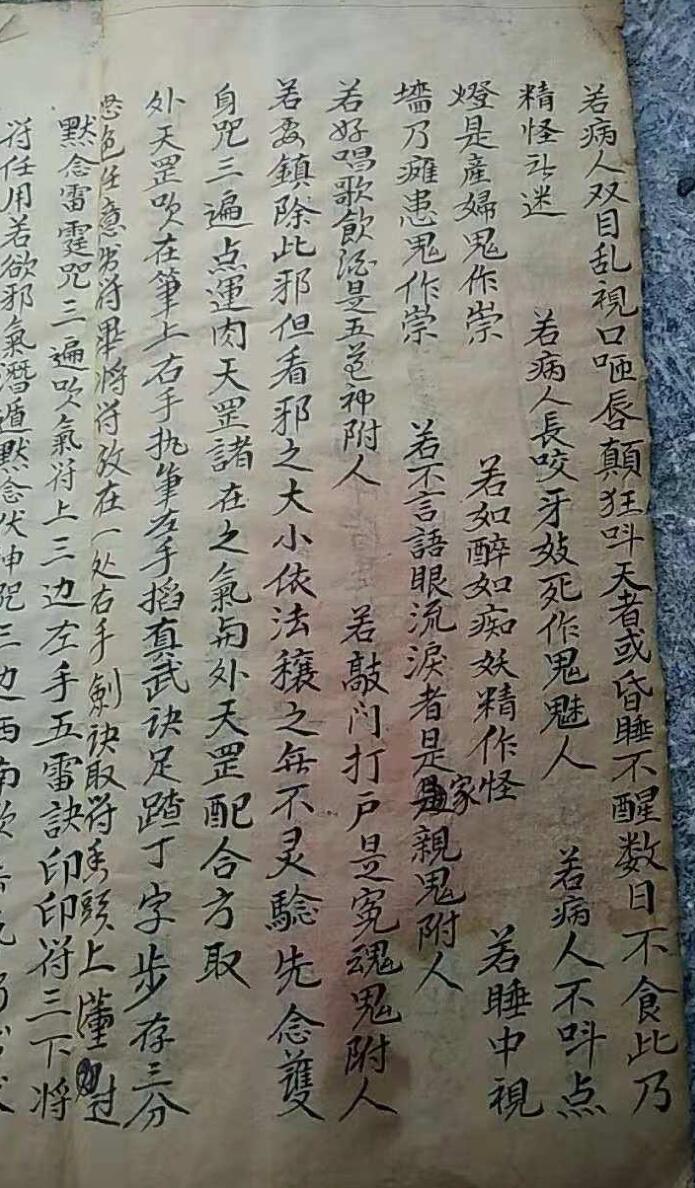 若病人双目乱視口咂唇顛狂呌天者或昏睡不醒数日不食此乃
精怪所迷 若病人長咬牙妓死作鬼魅人 若病人不呌点
燈是産婦鬼作祟 若如醉如痴妖精作怪 若睡中視
墻乃癱患鬼作祟 若不言語眼流淚者是家親鬼附人
若好唱歌飲酒是五道神附人 若敲门打户是寃魂鬼附人
若要鎮除此邪但看邪之大小依法穰之無不灵驗先念護
身咒三遍点運肉天罡諸在之氣与外天罡配合方取
外天罡吹在筆上右手执筆左手搯真武訣足踏丁字步存三分
色任意书符畢將符放在一处右手劍訣取符香頭上薰过
默念雷霆咒三遍吹氣符上三边左手五雷訣印印符三下将
符任用若欲邪氣潛遁默念伏神咒三边西南吹